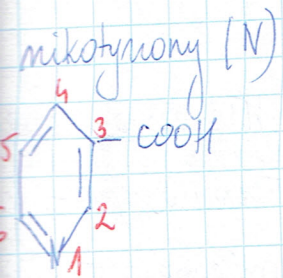 nikotynowy (N)
4
3 COOH
5
2
6
1